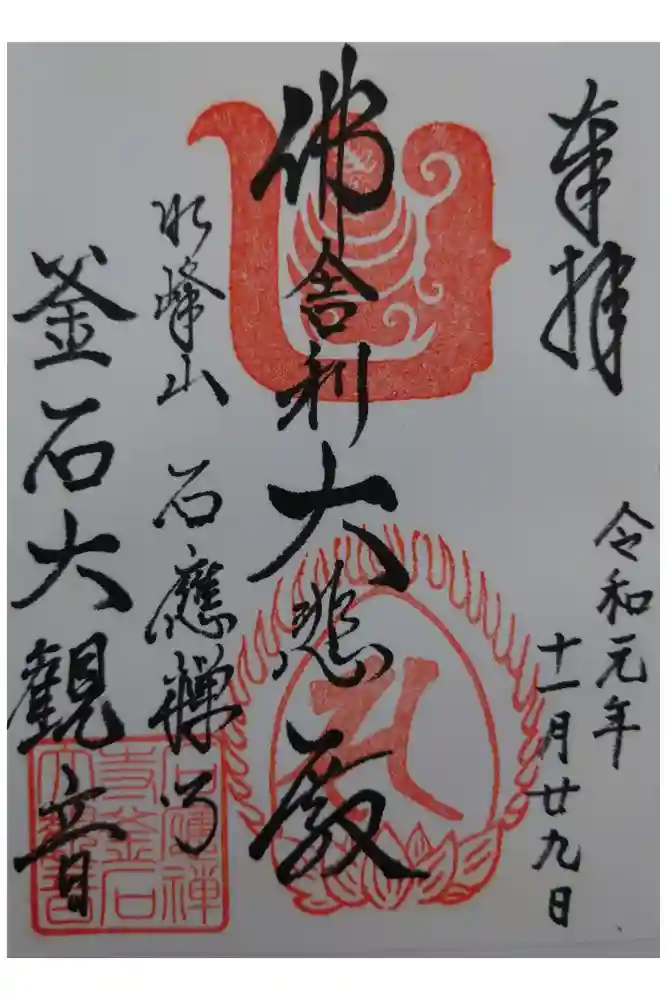 奉拝
令和元年
十一月廿九日
佛舎利大悲殿
氷峰山 石應禅寺
釜石大観音
石應禅
寺釜石
大観音